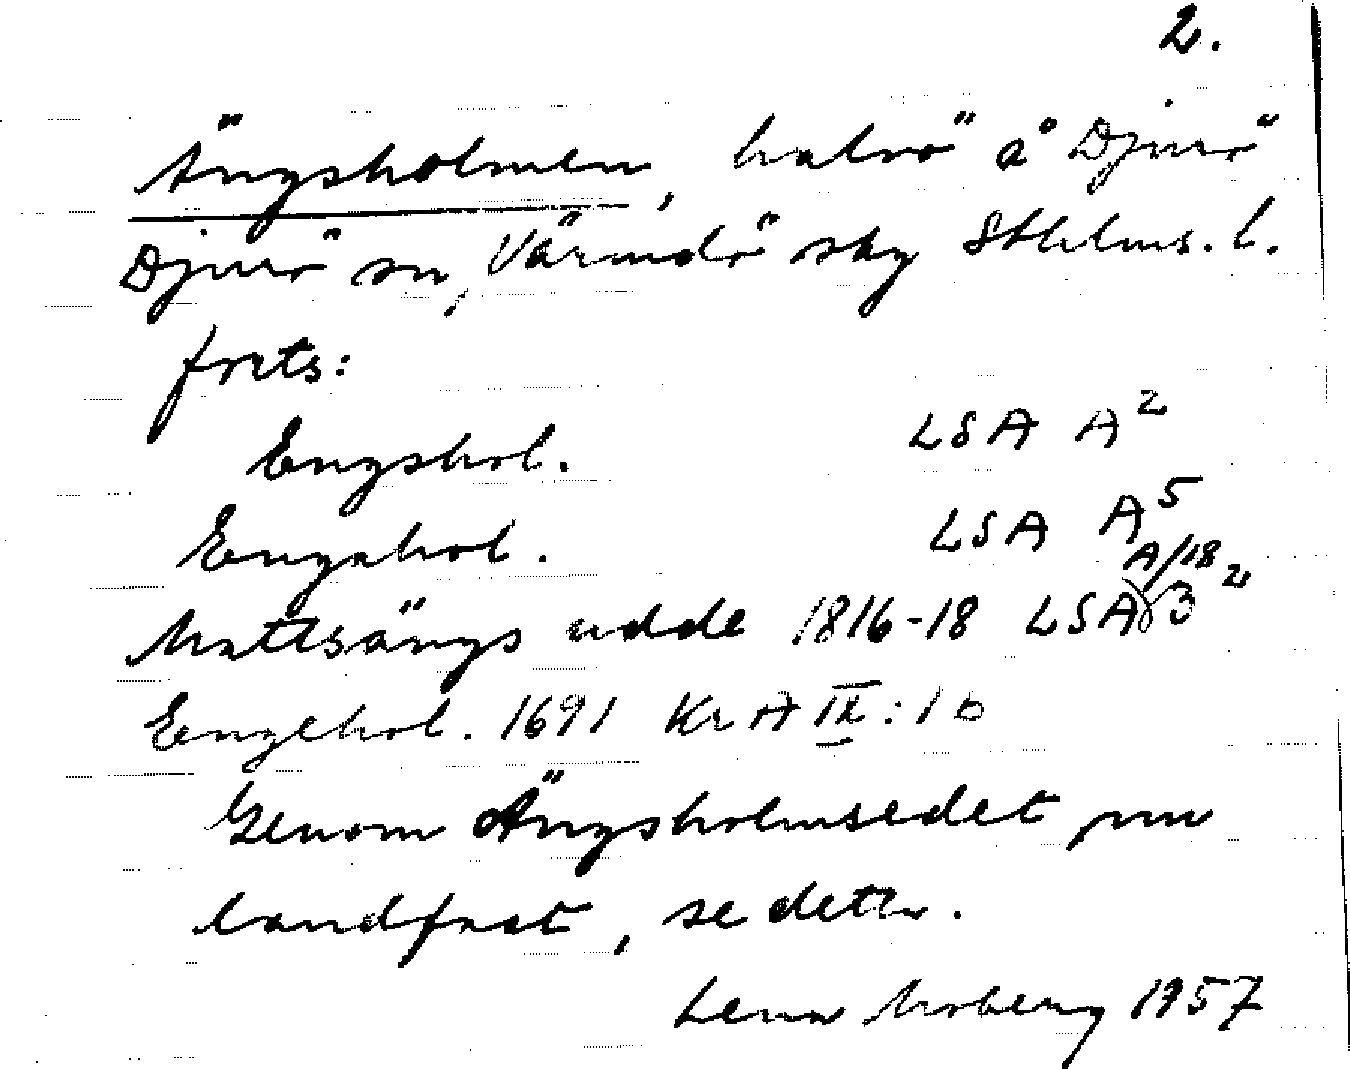 2.
Ängsholmen, halvö å Djurö
Djurö sn, Värmdö skg Sthlms. l.
forts:
Engshol. LSA A2
Engshol. LSA A5
Mattsängs udde 1816-18 LSA A/18 2
Engehol. 1691 KrA IX:16
Genom Ängsholmsedet nu
landfast, se detta.
Lena Moberg 1957